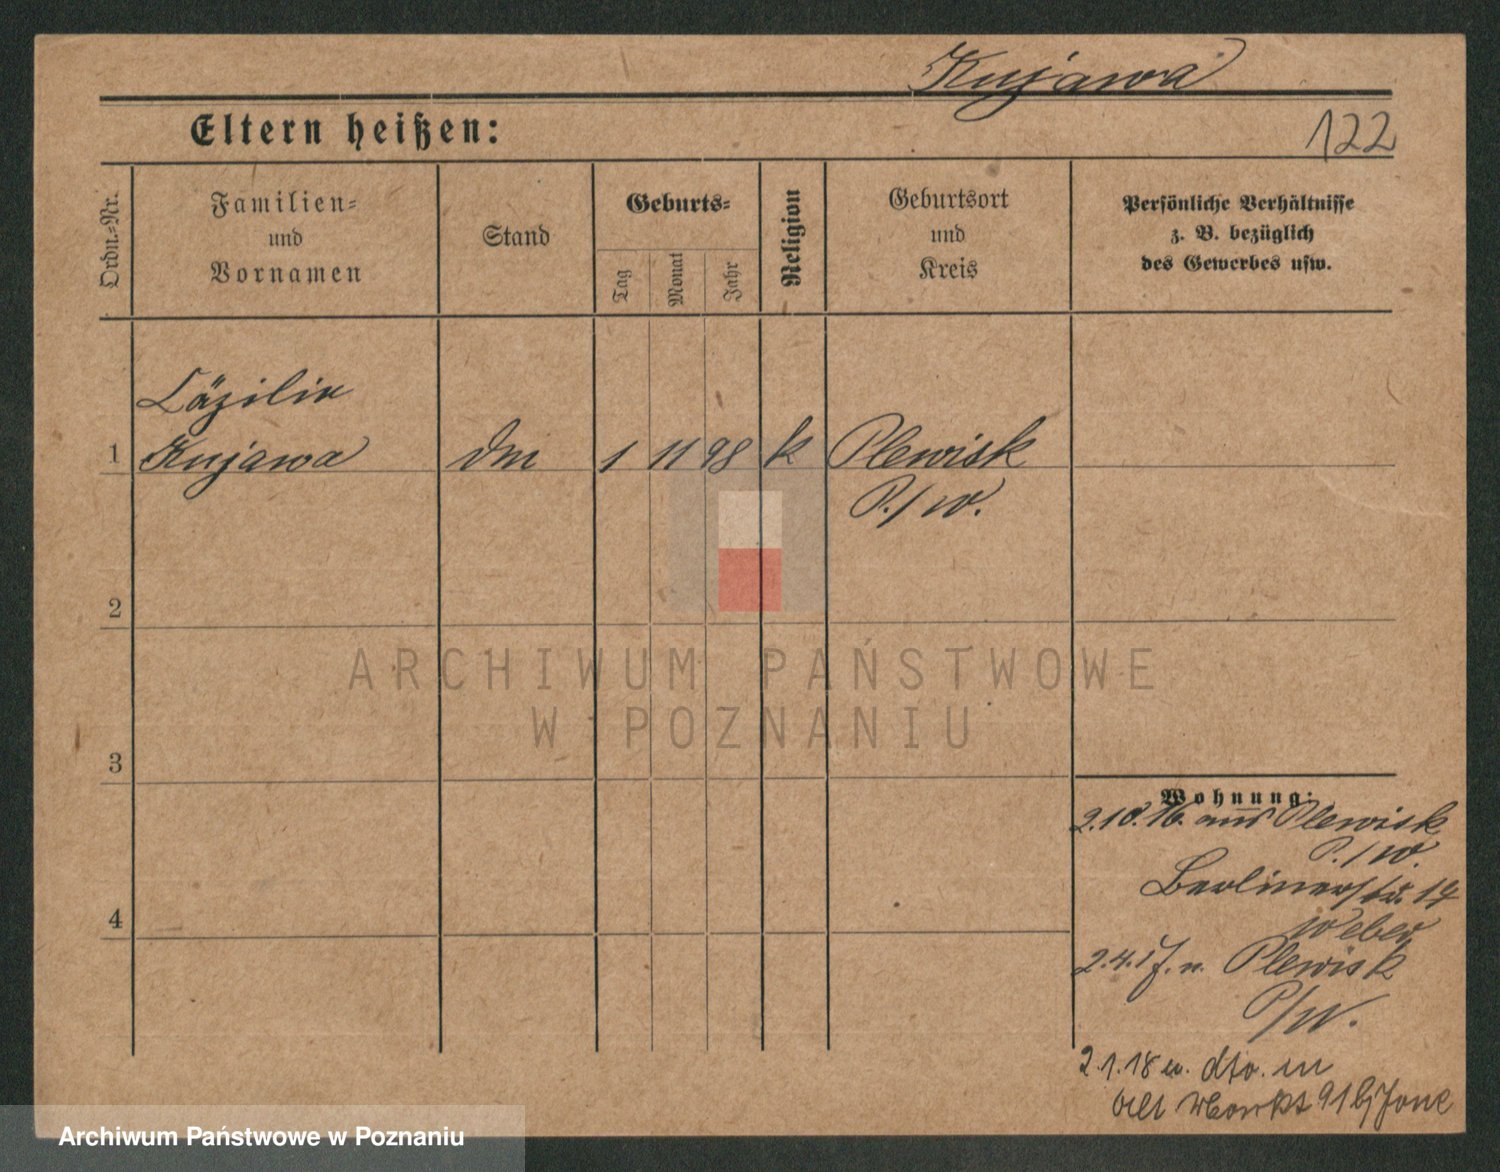 Kujawa
Eltern heißen:
122
Ordn.=Nr.
Familien=
und
Vornamen
Stand
Geburts=
Tag
Monat
Jahr
Religion
Geburtsort
und
Kreis
Persönliche Verhältnisse
z. B. bezüglich
des Gewerbes usw.
Cäzilie
1 Kujawa Dm 1 11 98 k Plewisk
P./W.
2
3
4
ARCHIWUM PAŃSTWOWE
W POZNANIU
Wohnung:
2.10.16. aus Plewisk
P./W.
Berlinerstr. 14
Weber
2.4.17. n. Plewisk
P/W.
2.1.18 dto. in
Alt Markt 91 bj
Archiwum Państwowe w Poznaniu